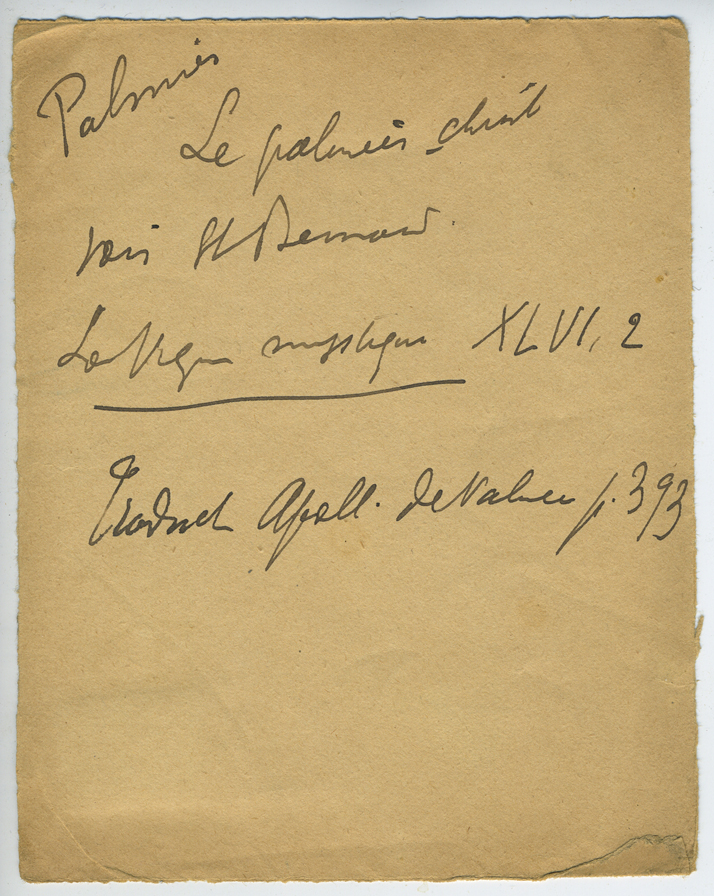 Palmier
Le palmier-christ
voir St Bernard.
La Vigne mystique XLVI, 2
Traduct Apoll. de Valence p. 393